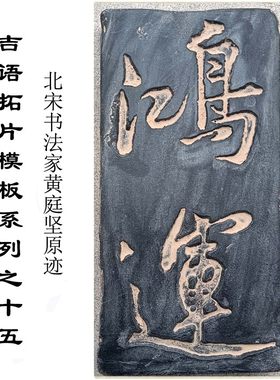 吉语拓片模板系列之十五
北宋书法家黄庭坚原迹
鴻運